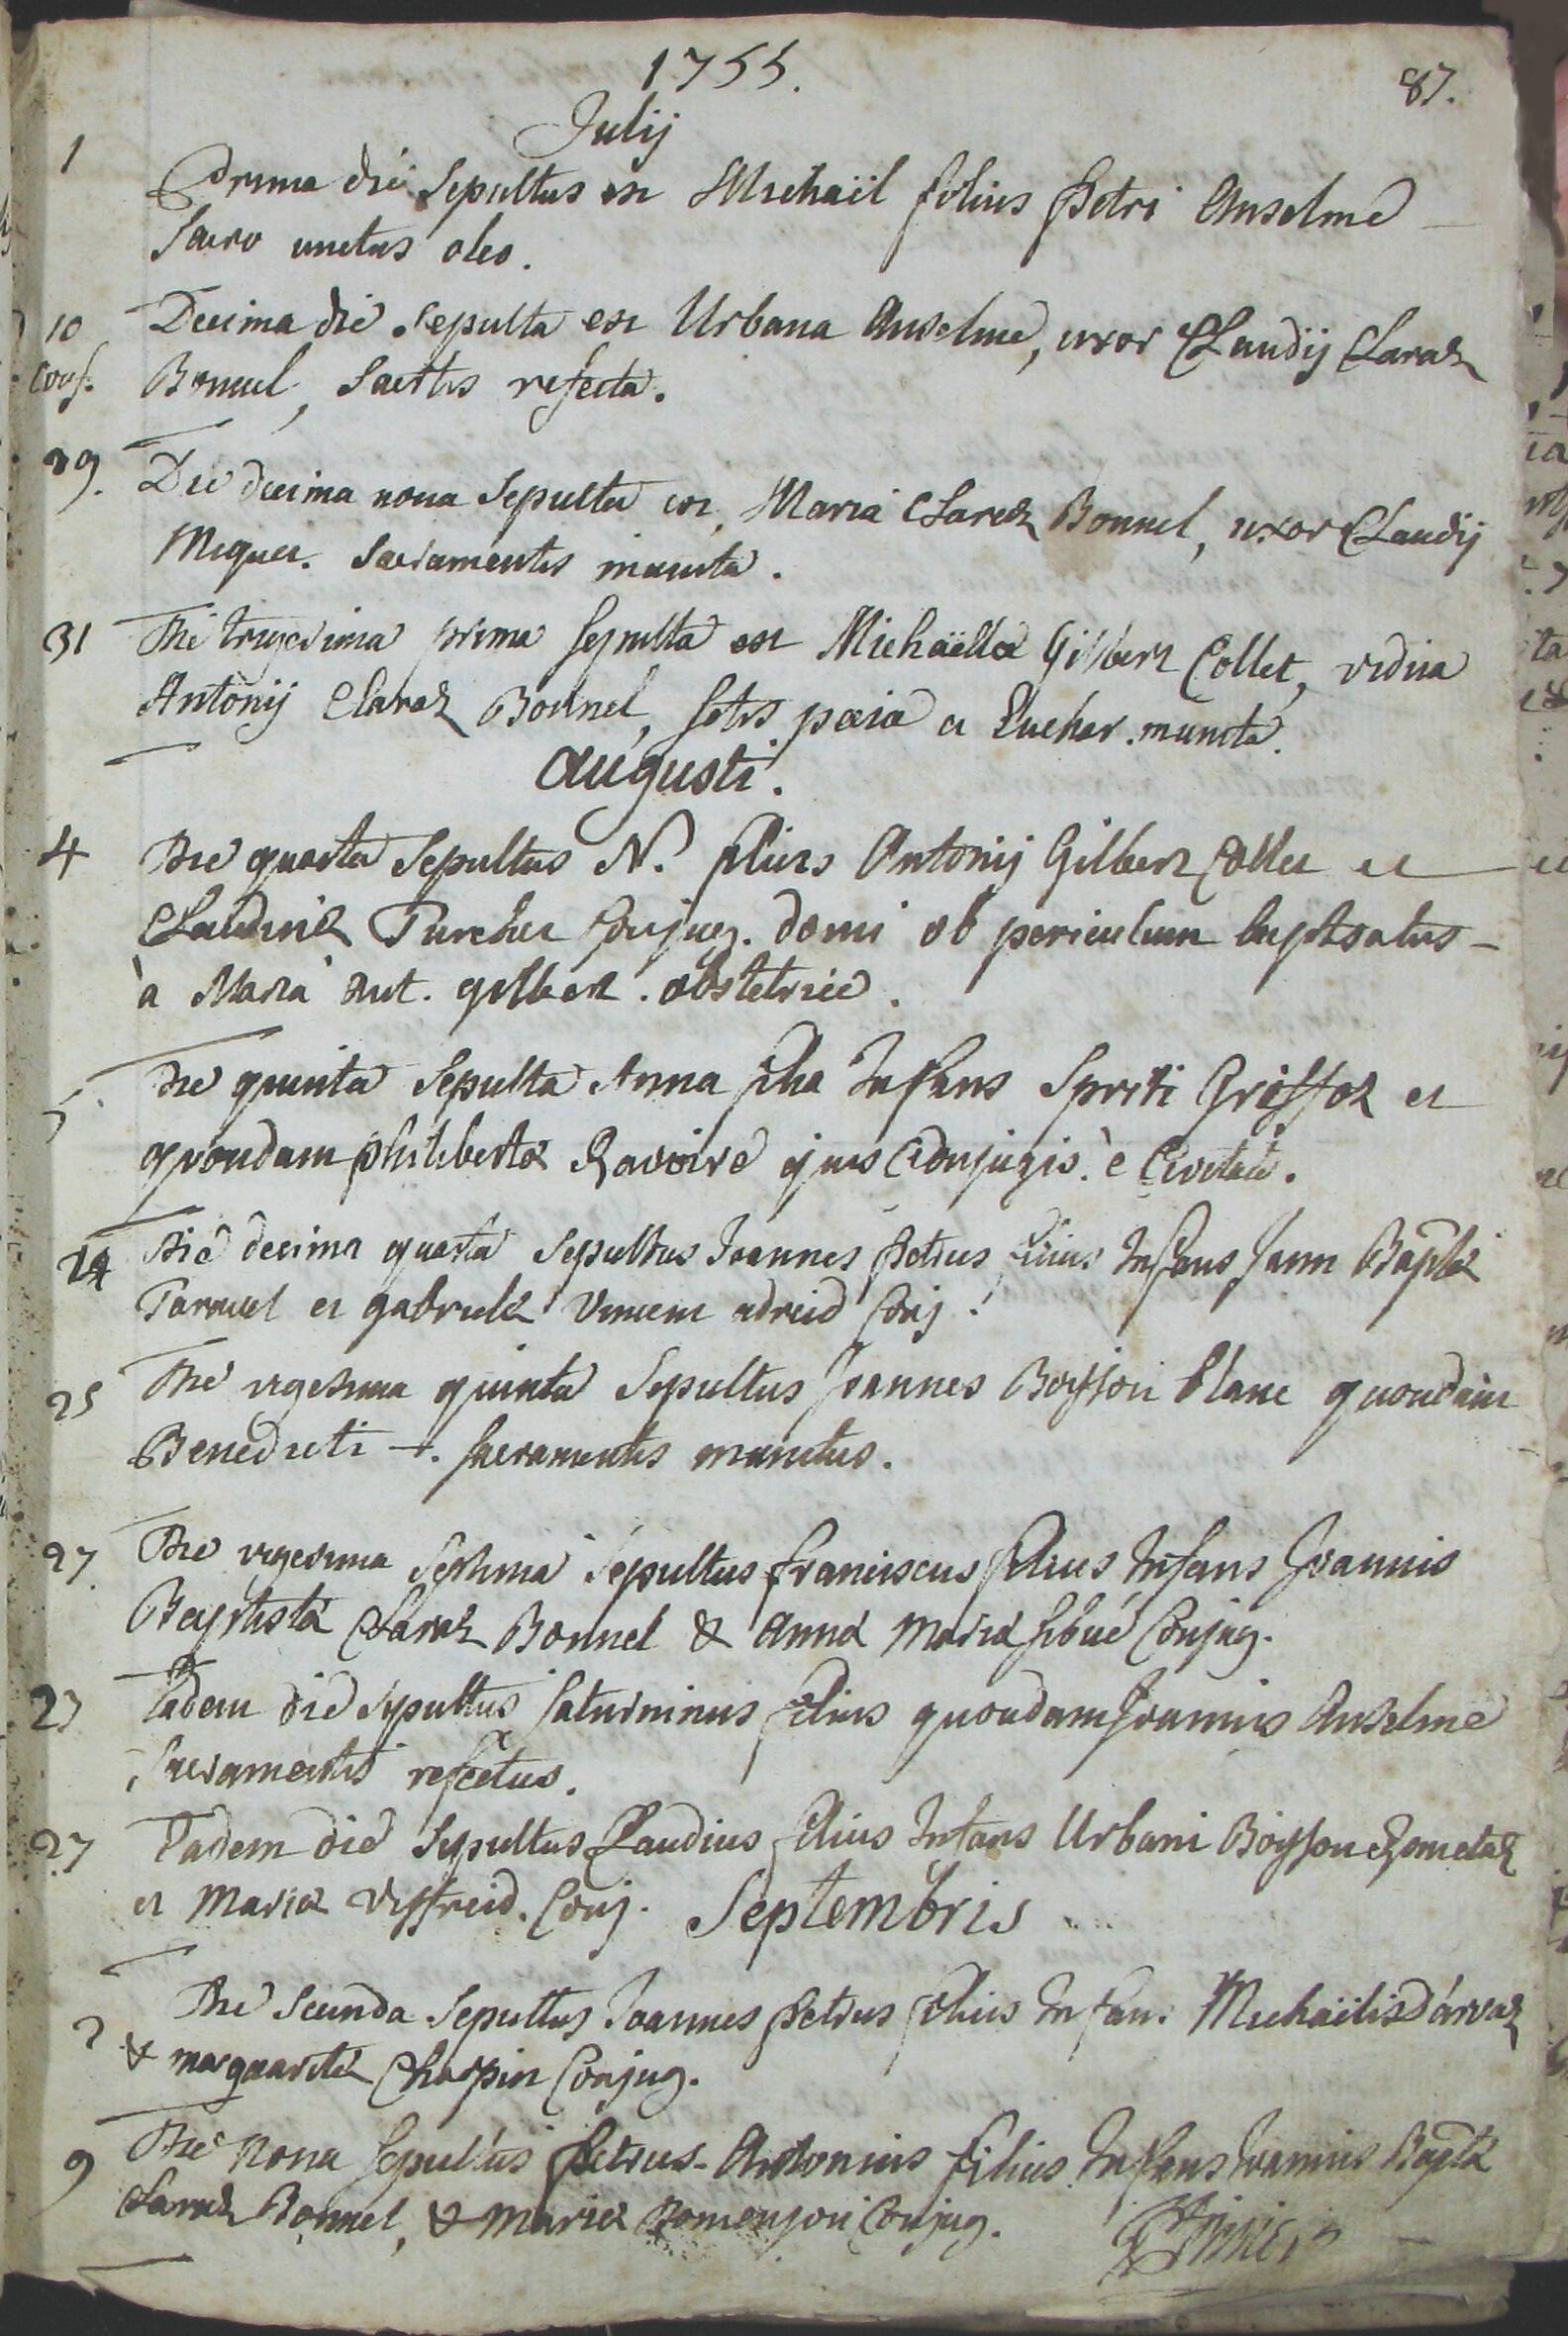 1755.
87.
Julij
1
Prima die Sepultus est Michaël filius Petri Anselme
Sacro unctus oleo.
10 Decima die Sepulta est Urbana Anselme, uxor Claudij Claraz
Conf. Bonnel, Sacrtis refecta.
19. Die decima nona Sepulta est, Maria Claraz Bonnel, uxor Claudij
Miquet. Sacramentis munita.
31 Die trigesima prima Sepulta est Michaëlla Gilbert Collet, vidua
Antonij Claraz Bonnel, Sctis pœia et Euchar. munita.
Augusti.
4 Die quarta Sepultus N. filius Antonij Gilbert Collet et
Claudinæ Turcher Conjug. domi ob periculum baptisatus
à Maria Ant. gilbert. obstetrice.
5 Die quinta Sepulta Anna filia Infans Spriti Griffoz et
quondam philibertæ Ravoire ejus Conjugis. è Civitate.
14 Die decima quarta Sepultus Joannes Petrus filius Infans Joann Baptæ
et gabrielæ Vincent Conj.
25 Die vigesima quinta Sepultus Joannes Boysson blanc quondam
Benedicti +. Sacramentis munitus.
27 Die vigesima Septima Sepultus franciscus filius Infans Joannis
Baptistæ Claraz Bonnel & Annæ Mariæ Conjug.
27 Eadem die Sepultus Saturninus filius quondam Joannis Anselme
Sacramentis refectus.
27 Eadem die Sepultus Claudius filius Infans Urbani Boysson
et Mariæ Viffreid. Conj. Septembris
2 Die Secunda Sepultus Joannes Petrus filius Infans Michaëlis Darvaz
& margaaritæ Charpin Conjug.
9 Die Nona Sepultus Petrus-Antonius filius Infans Joannis Baptæ
Claraz Bonnel, & Mariæ Domenjon Conjug.